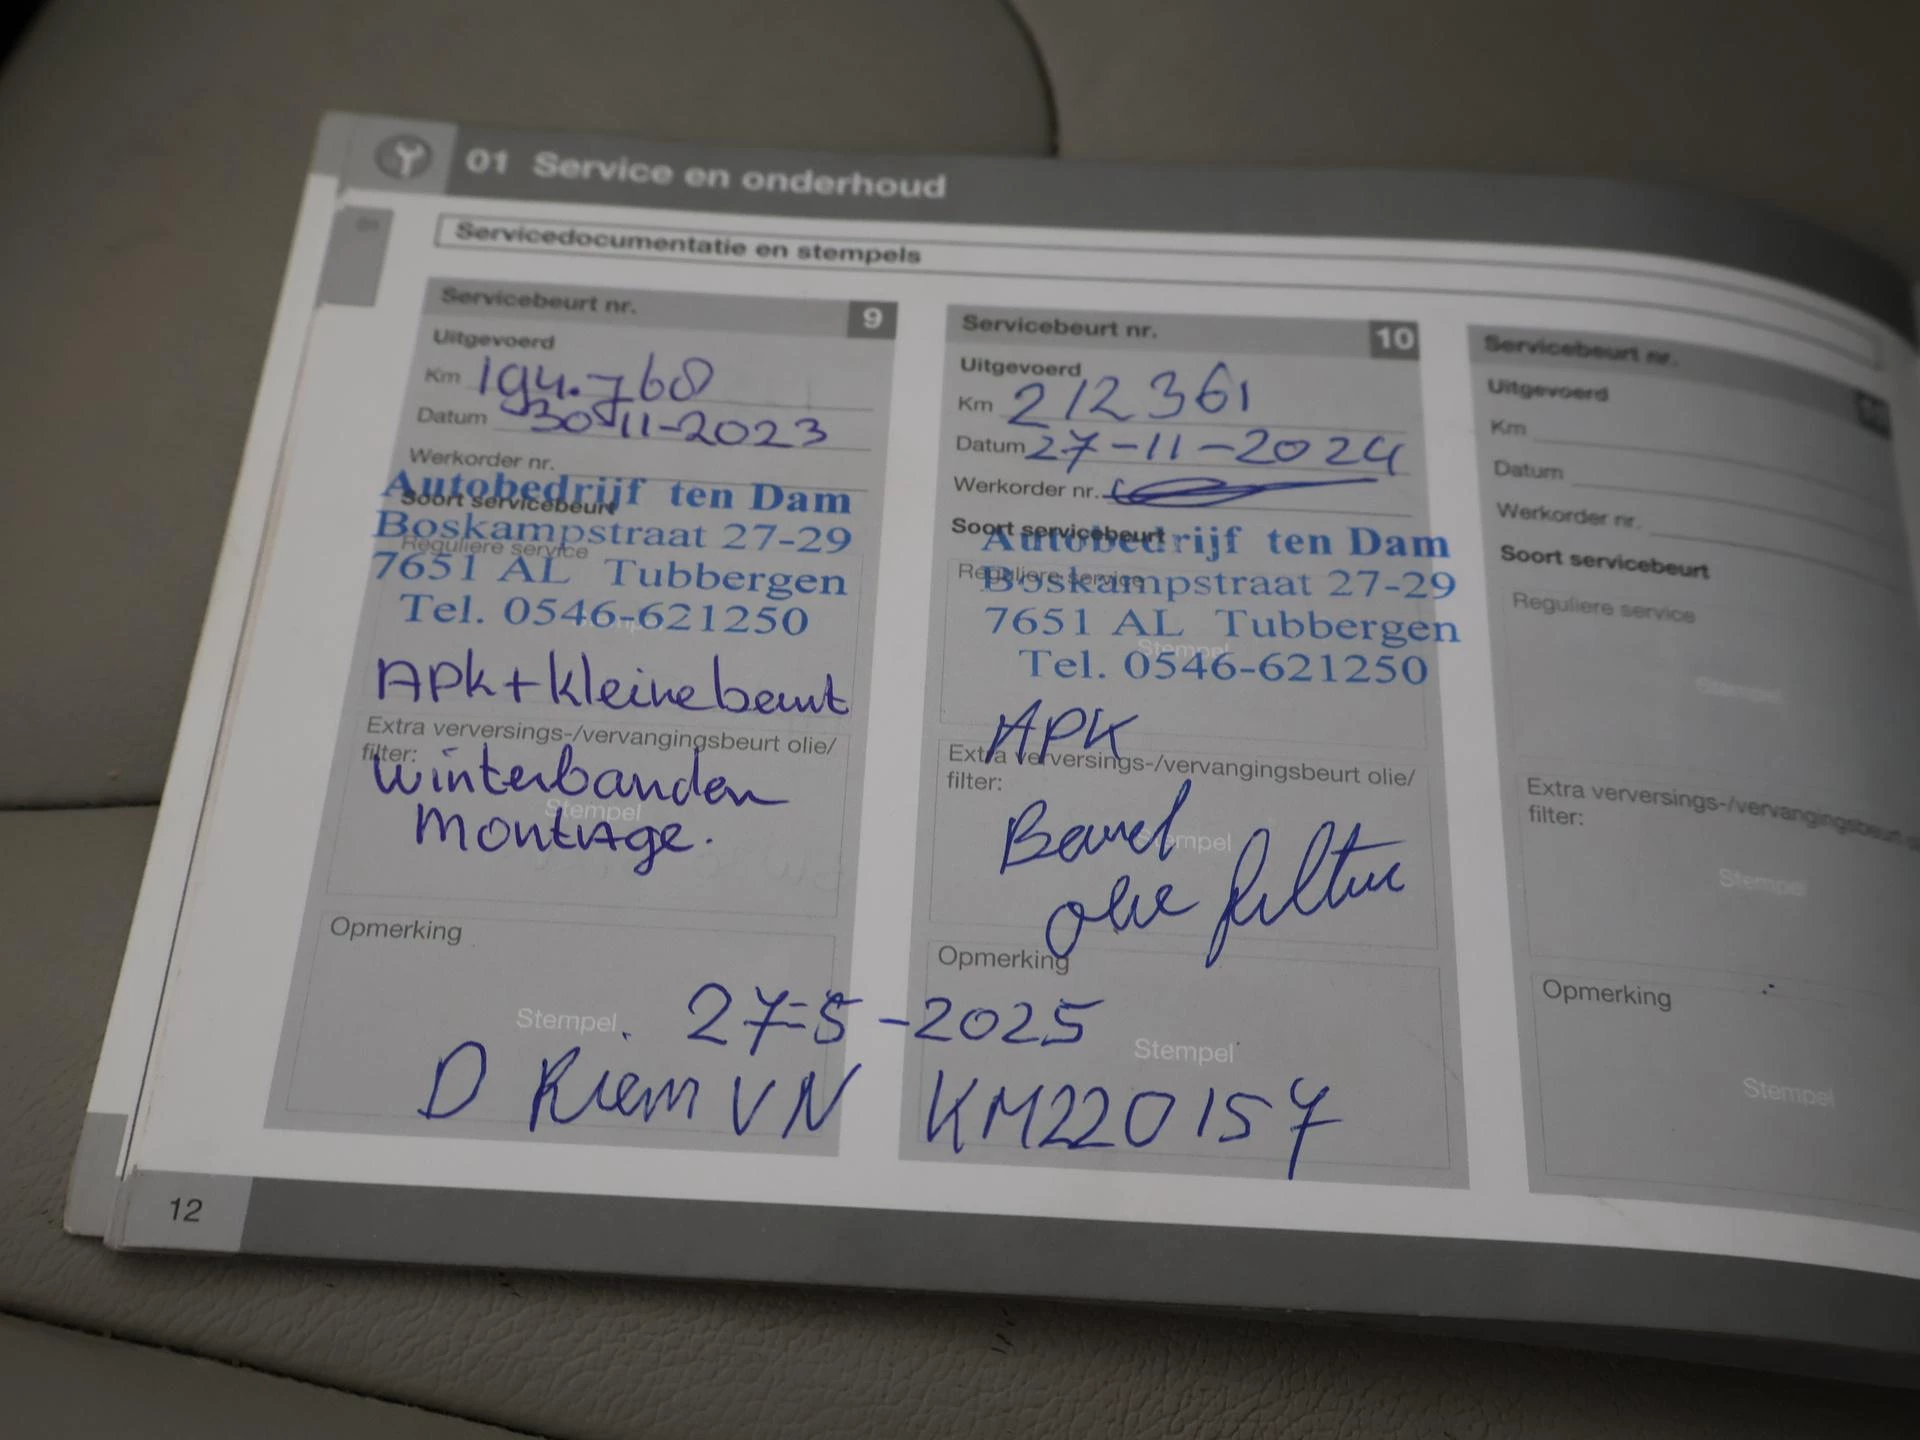 01 Service en onderhoud
Servicedocumentatie en stempels
Servicebeurt nr. 9
Uitgevoerd
Km 194.768
Datum 30-11-2023
Werkorder nr.
Soort servicebeurt
Autobedrijf ten Dam
Boskampstraat 27-29
Reguliere service
7651 AL Tubbergen
Tel. 0546-621250
APK + kleine beurt
Extra verversings-/vervangingsbeurt olie/
filter:
Winterbanden
Stempel
Montage.
Opmerking
Stempel
Servicebeurt nr. 10
Uitgevoerd
Km 212361
Datum 27-11-2024
Werkorder nr.
Soort servicebeurt
Autobedrijf ten Dam
Reguliere service
Boskampstraat 27-29
7651 AL Tubbergen
Stempel
Tel. 0546-621250
APK
Extra verversings-/vervangingsbeurt olie/
filter:
Stempel
olie filter
Opmerking
Stempel
27-5-2025
D Riem VN KM220157
Servicebeurt nr.
Uitgevoerd
Km
Datum
Werkorder nr.
Soort servicebeurt
Reguliere service
Stempel
Extra verversings-/vervangingsbeurt
filter:
Stempel
Opmerking
Stempel
12